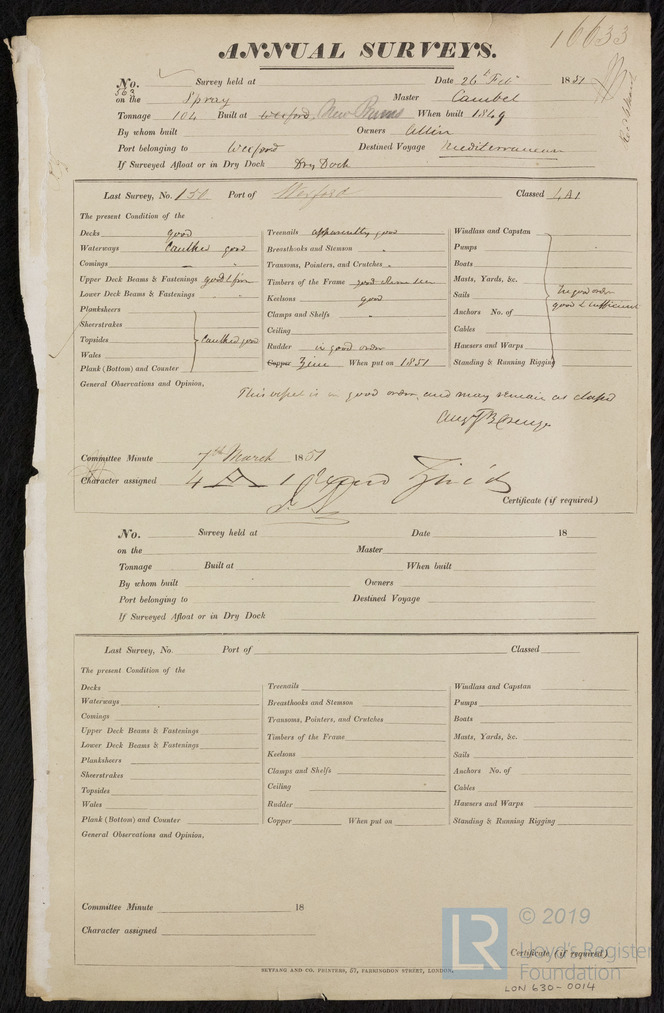 16633
ANNUAL SURVEYS.
No. 563 Survey held at Date 26th Feb 1851
on the Spray Master Cambel
Tonnage 104 Built at Wexford, New Bruns When built 1849
By whom built Owners Allin
Port belonging to Wexford Destined Voyage Mediterranean
If Surveyed Afloat or in Dry Dock Dry Dock
Last Survey, No. 151 Port of Wexford Classed 4A1
The present Condition of the
Decks good
Waterways Caulked good
Comings
Upper Deck Beams & Fastenings good & firm
Lower Deck Beams & Fastenings
Planksheers
Sheerstrakes
Topsides Caulked good
Wales
Plank (Bottom) and Counter
Treenails apparently good
Breasthooks and Stemson "
Transoms, Pointers, and Crutches "
Timbers of the Frame good
Keelsons good
Clamps and Shelfs "
Ceiling
Rudder in good order
Copper Zinc When put on 1851
Windlass and Capstan
Pumps
Boats
Masts, Yards, &c.
Sails In good order
good & sufficient
Anchors No. of
Cables
Hawsers and Warps
Standing & Running Rigging
General Observations and Opinion,
This vessel is in good order, and may remain as classed
Committee Minute 7th March 1851
Character assigned 4 A 1 Zinc'd
Certificate (if required)
No. Survey held at Date 18
on the Master
Tonnage Built at When built
By whom built Owners
Port belonging to Destined Voyage
If Surveyed Afloat or in Dry Dock
Last Survey, No. Port of Classed
The present Condition of the
Decks
Waterways
Comings
Upper Deck Beams & Fastenings
Lower Deck Beams & Fastenings
Planksheers
Sheerstrakes
Topsides
Wales
Plank (Bottom) and Counter
Treenails
Breasthooks and Stemson
Transoms, Pointers, and Crutches
Timbers of the Frame
Keelsons
Clamps and Shelfs
Ceiling
Rudder
Copper When put on
Windlass and Capstan
Pumps
Boats
Masts, Yards, &c.
Sails
Anchors No. of
Cables
Hawsers and Warps
Standing & Running Rigging
General Observations and Opinion,
Committee Minute 18
Character assigned
Certificate (if required)
SEYFANG AND CO. PRINTERS, 57, FARRINGDON STREET, LONDON.
LR © 2019
Lloyd's Register
Foundation
LON 630-0014